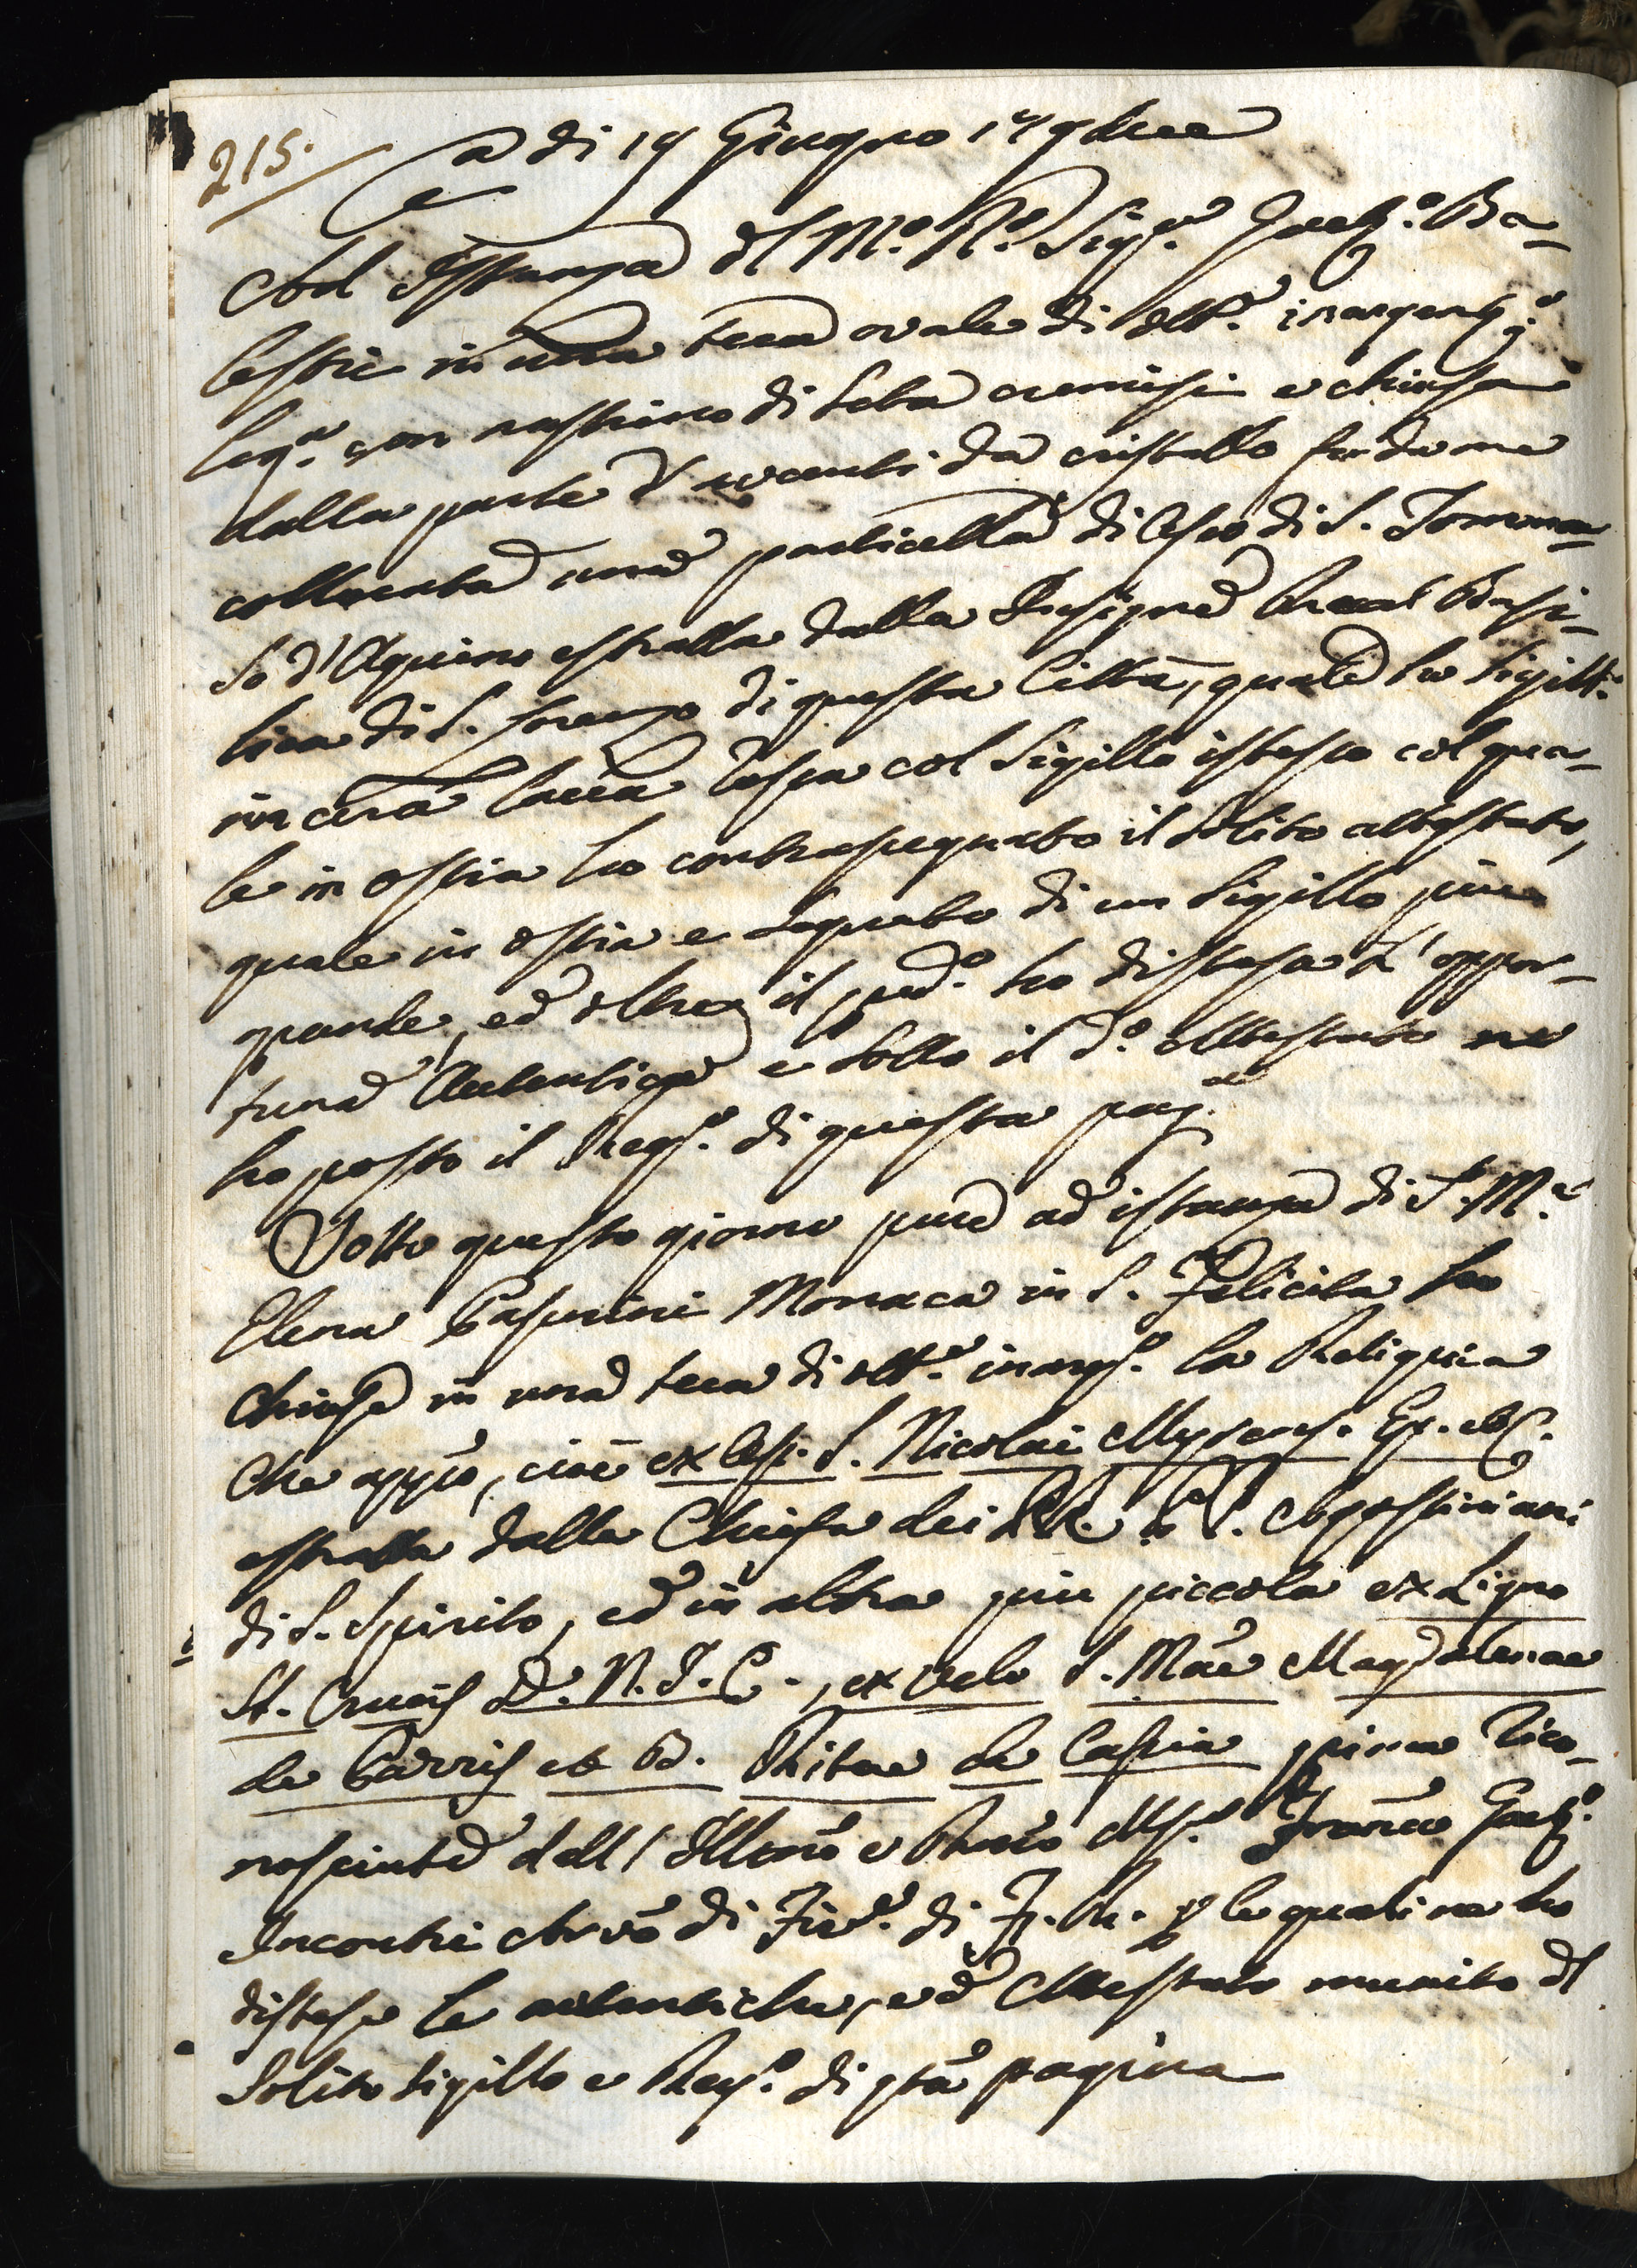 215.
a di 14 Giugno 179
Ad Istanza dl M.º R.º Sig.ʳᵉ Gaet.º Ba-
lestri in una teca ovale di ott.ᵉ inargent.ᵃ
leg.ᵃ con nastrino di seta cremisi e chiusa
dalla parte d'avanti da cristallo fu da me
collocata una particella di Osso di S. Tomma-
so d'Aquino estratta dalla Insigne Real Basi-
lica di S. Lorenzo di questa Città, quale ho sigill.ᵃ
in cera lacca rossa col sigillo istesso col qua-
le in ostia ho contrassegnato il solito attestato,
quale in ostia e segnato di un sigillo più
grande, ed oltre il pred.º ho distesa l'oppor-
tuna Autentica e sotto il d.º Attestato ne
ho posto il Reg.º di questa pag.ⁿᵃ
Sotto questo giorno pure ad istanza di S.ʳ M.ᵃ
Elena Gasperini Monaca in S. Felicita ho
Chiuse in una teca di ott.ᵉ inarg.ᵗᵃ la Reliquia
che app.º, cioè ex Ossi. S. Nicolai Myrens. Ep. et C.
estratta dalla Chiesa dei RR. P. P. Agostiniani
di S. Spirito, ed in altra più piccola ex Ligno
St. Crucis D. N. J. C., ex velo S. Mae Magdalenae
de Pazzis et B. Ritae de Cassia prima rico-
nosciute dall'Illmo e Rmo Msg.ʳ Franco Gaet.º
Incontri Arcvo di Fir.ᵉ di F. R. p le quali ne ho
distese le autentiche, ed Attestato munito dl
solito sigillo e Reg.º di qta pagina